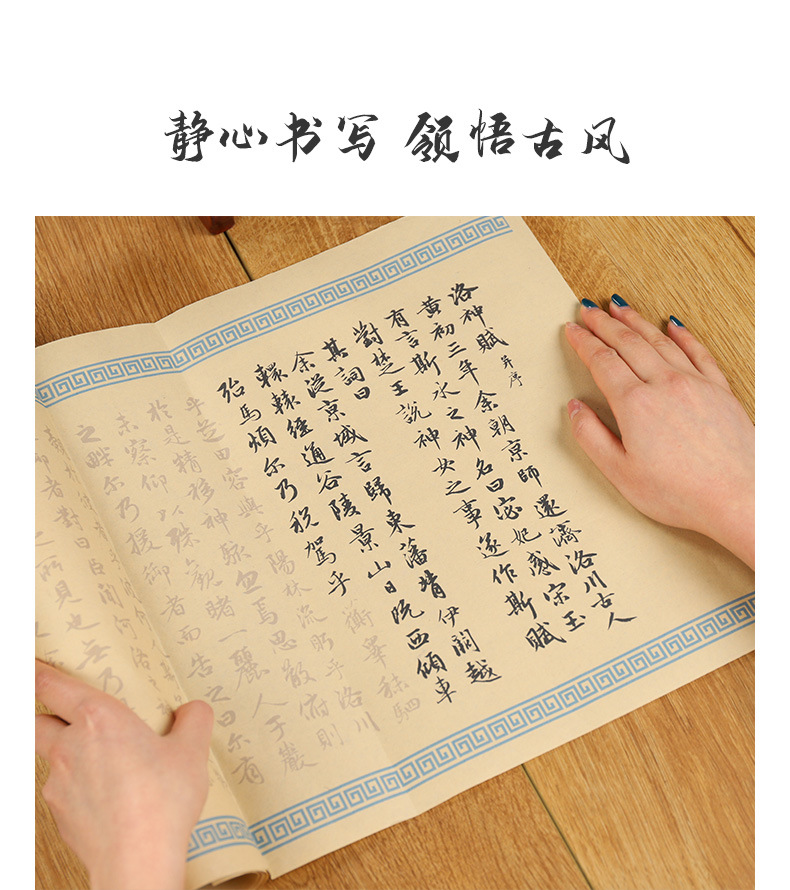 静心书写 领悟古风
洛神賦 并序
黄初三年余朝京師還濟洛川古人
有言斯水之神名曰宓妃感宋玉
對楚王說神女之事遂作斯賦
其詞曰
余從京城言歸東藩背伊闕越
轘轅經通谷陵景山日既西傾車
殆馬煩尔乃税駕乎蘅皋秣駟
乎芝田容與乎陽林流眄乎洛川
於是精移神駭忽焉思散俯則
未察仰以殊觀睹一麗人于巖
之畔尔乃援御者而告之曰尔有
御者對曰臣聞河洛之
所見也無乃